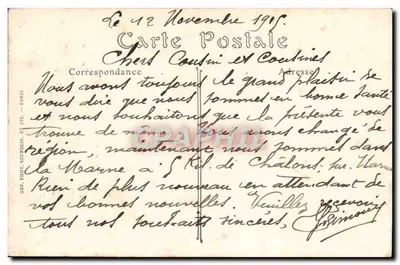 Le 12 Novembre 1915.
Carte Postale
Chers Cousin et Cousines
Correspondance
Adresse
Nous avons toujours le grand plaisir de
vous dire que nous sommes en bonne santé
et nous souhaitons que la présente vous
trouve de même. Nous avons changé de
région, maintenant nous sommes dans
la Marne a 5 Kil. de Chalons sur Marne
Rien de plus nouveau en attendant de
vos bonnes nouvelles. Veuillez recevoir
tous nos souhaits sincères,
IMP. PHOT. NEURDEIN ET CIE. — PARIS
CPAPHIL